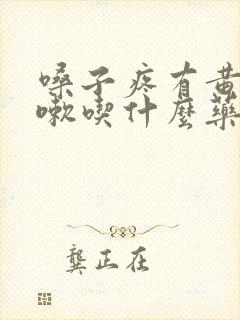 嗓子疼有黄
嗽喫什麽藥
龔正在